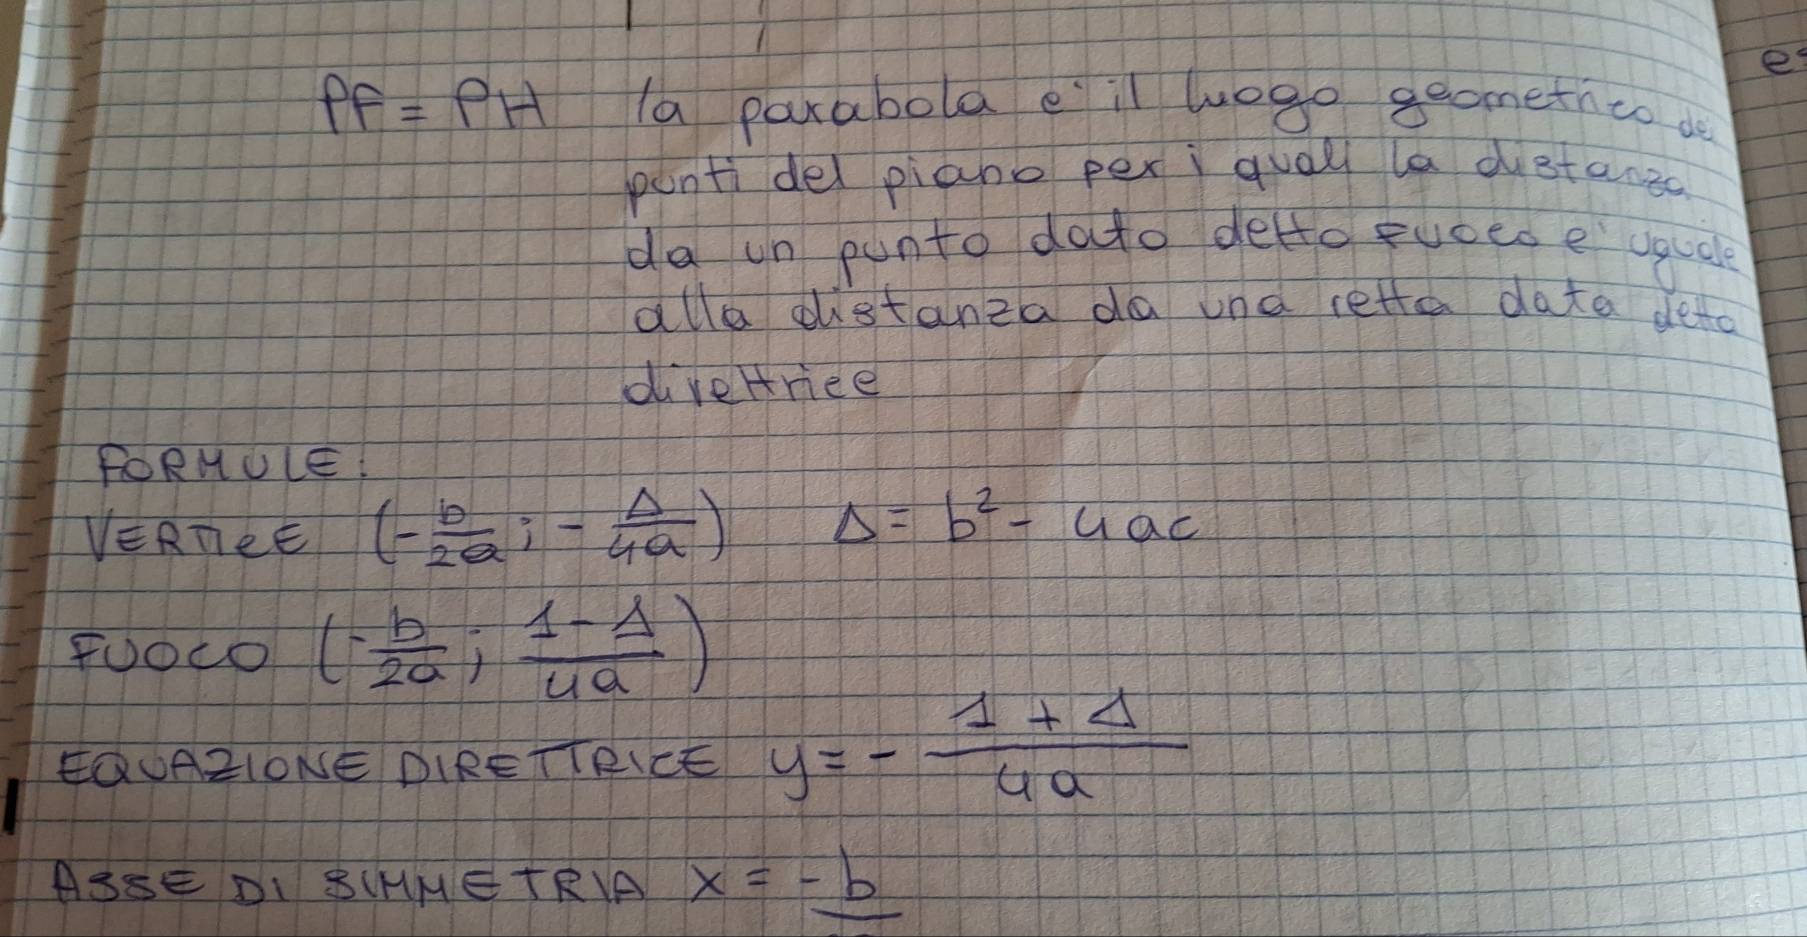 PF = PH la parabola e' il luogo geometrico dei
punti del piano per i quali la distanza
da un punto dato detto fuoco e' uguale
alla distanza da una retta data detta
direttrice
FORMULE:
VERTICE (-b/2a ; -Δ/4a) Δ = b² - 4ac
FUOCO (-b/2a ; 1-Δ/4a)
EQUAZIONE DIRETTRICE y = - 1 + Δ/4a
ASSE DI SIMMETRIA x = -b